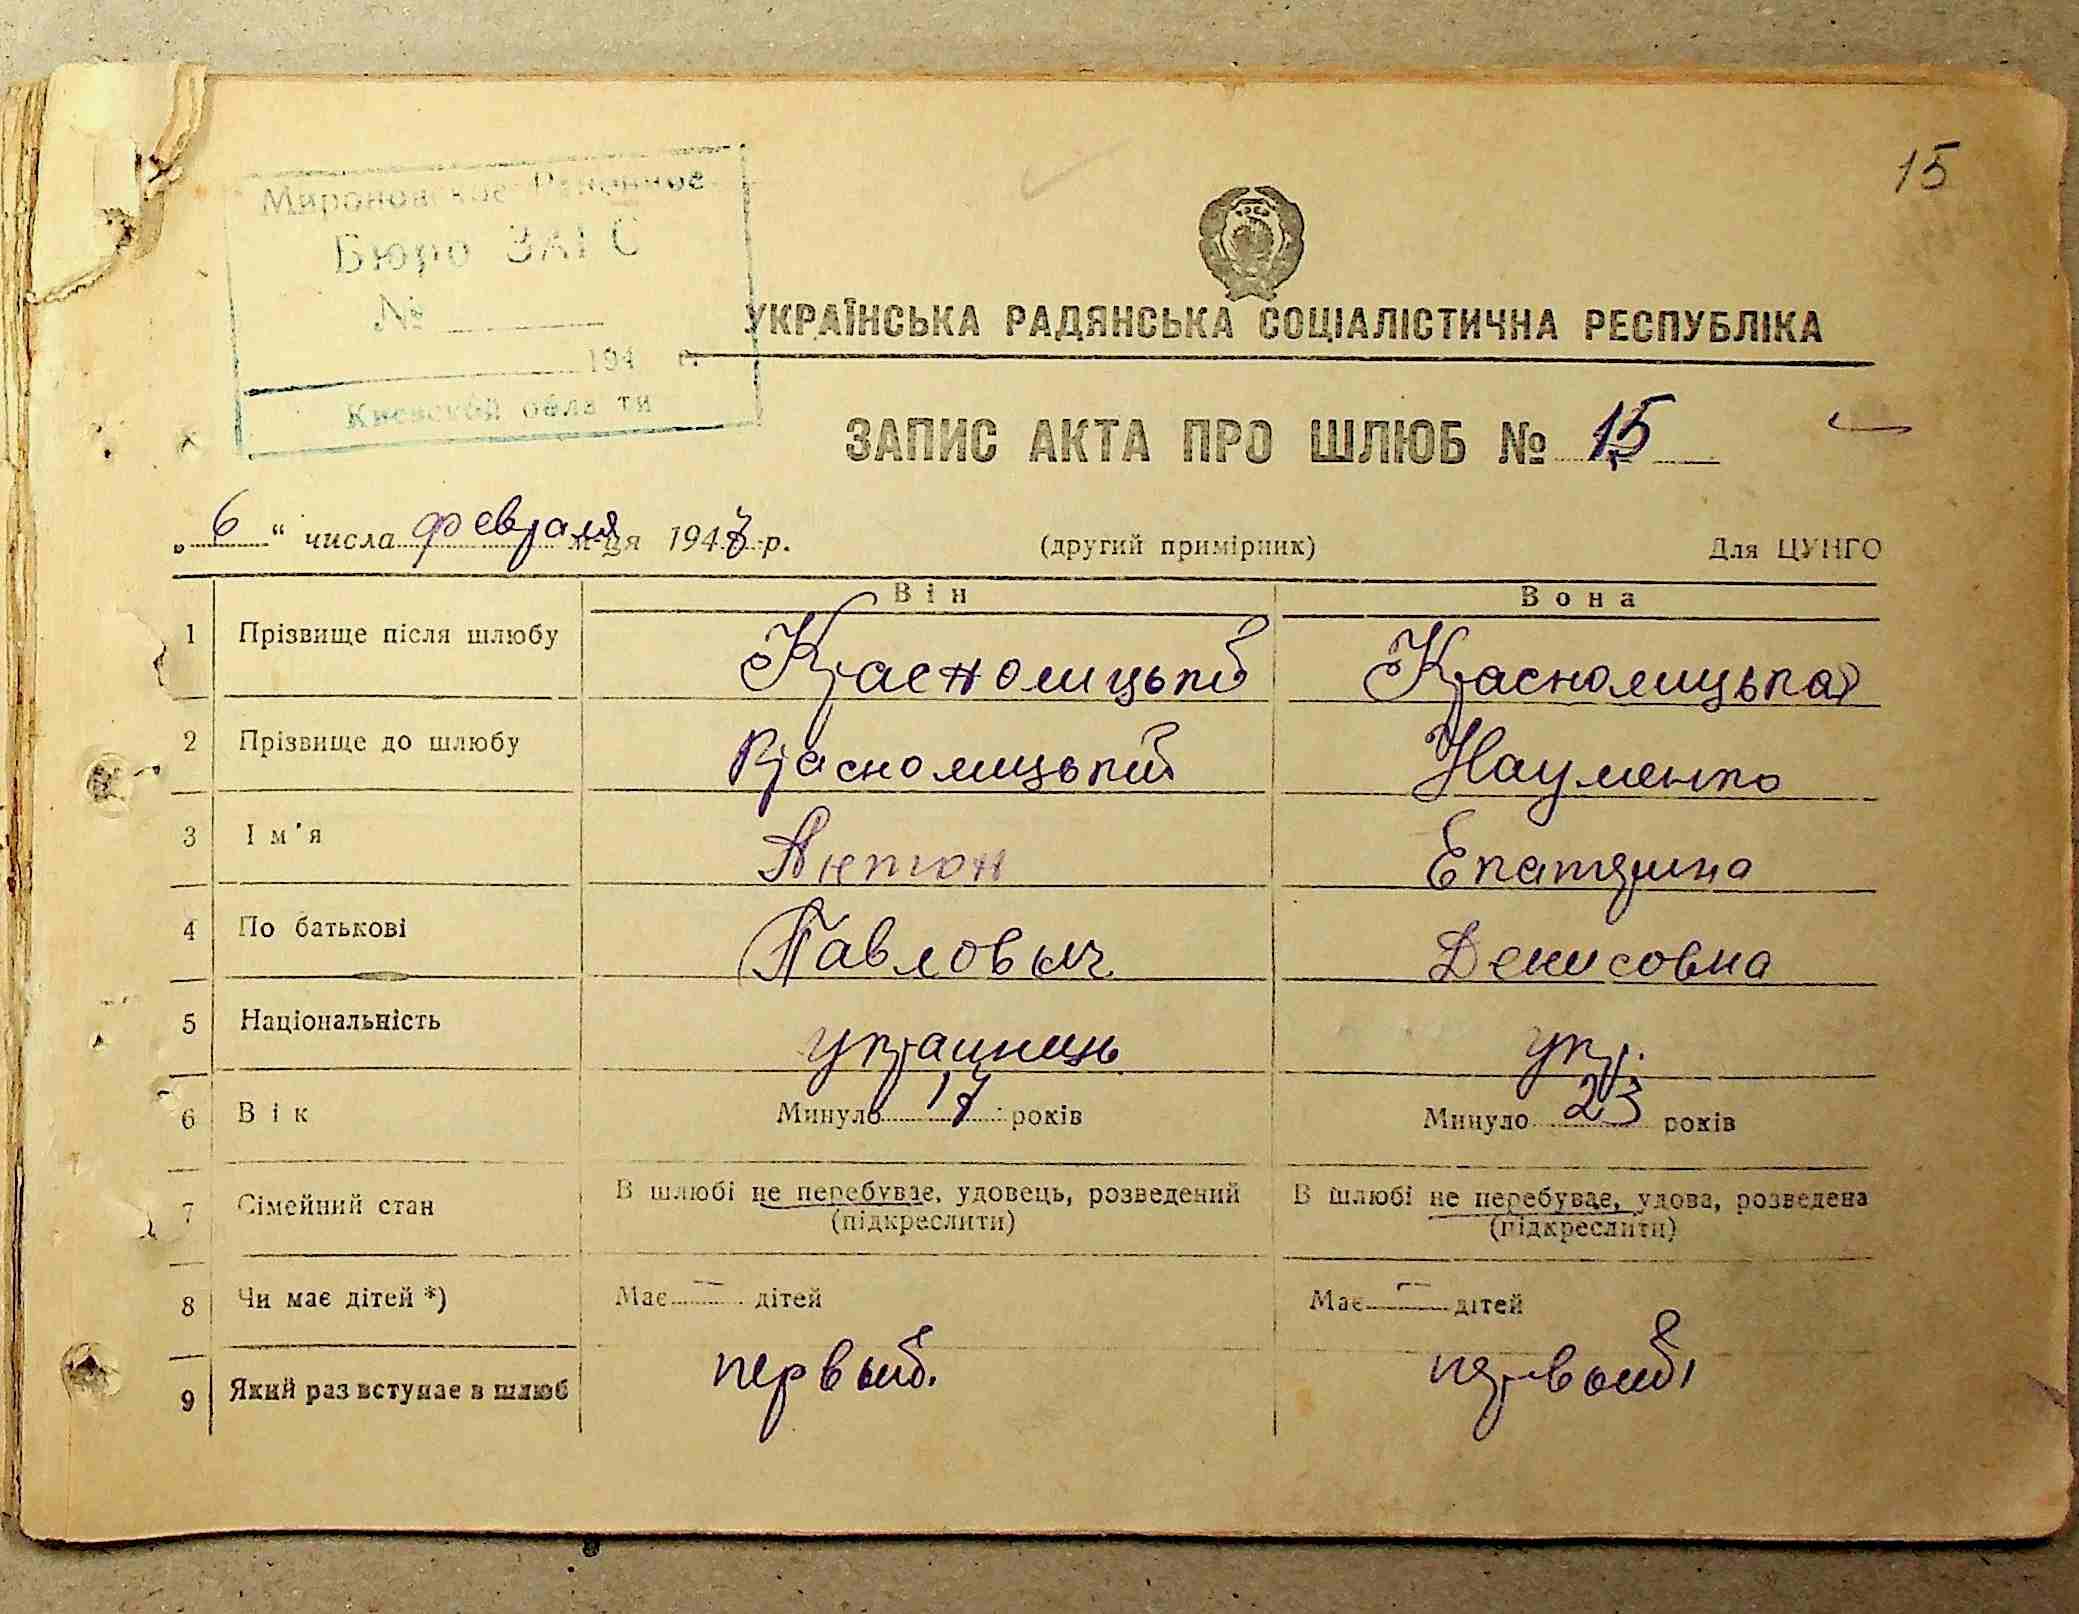 15
Мироновское Районное
Бюро ЗАГС
№
194 г.
Киевской области
УКРАЇНСЬКА РАДЯНСЬКА СОЦІАЛІСТИЧНА РЕСПУБЛІКА
ЗАПИС АКТА ПРО ШЛЮБ № 15
„ 6 “ числа февраля м-ця 1947 р. (другий примірник) Для ЦУНГО
Він Вона
1 Прізвище після шлюбу Краснолицький Краснолицькая
2 Прізвище до шлюбу Краснолицький Науменко
3 Ім'я Антон Екатерина
4 По батькові Павлович Денисовна
5 Національність украинець укр.
6 Вік Минуло 17 років Минуло 23 років
7 Сімейний стан В шлюбі не перебуває, удовець, розведений В шлюбі не перебуває, удова, розведена
(підкреслити) (підкреслити)
8 Чи має дітей *) Має — дітей Має — дітей
9 Який раз вступає в шлюб первый. первый